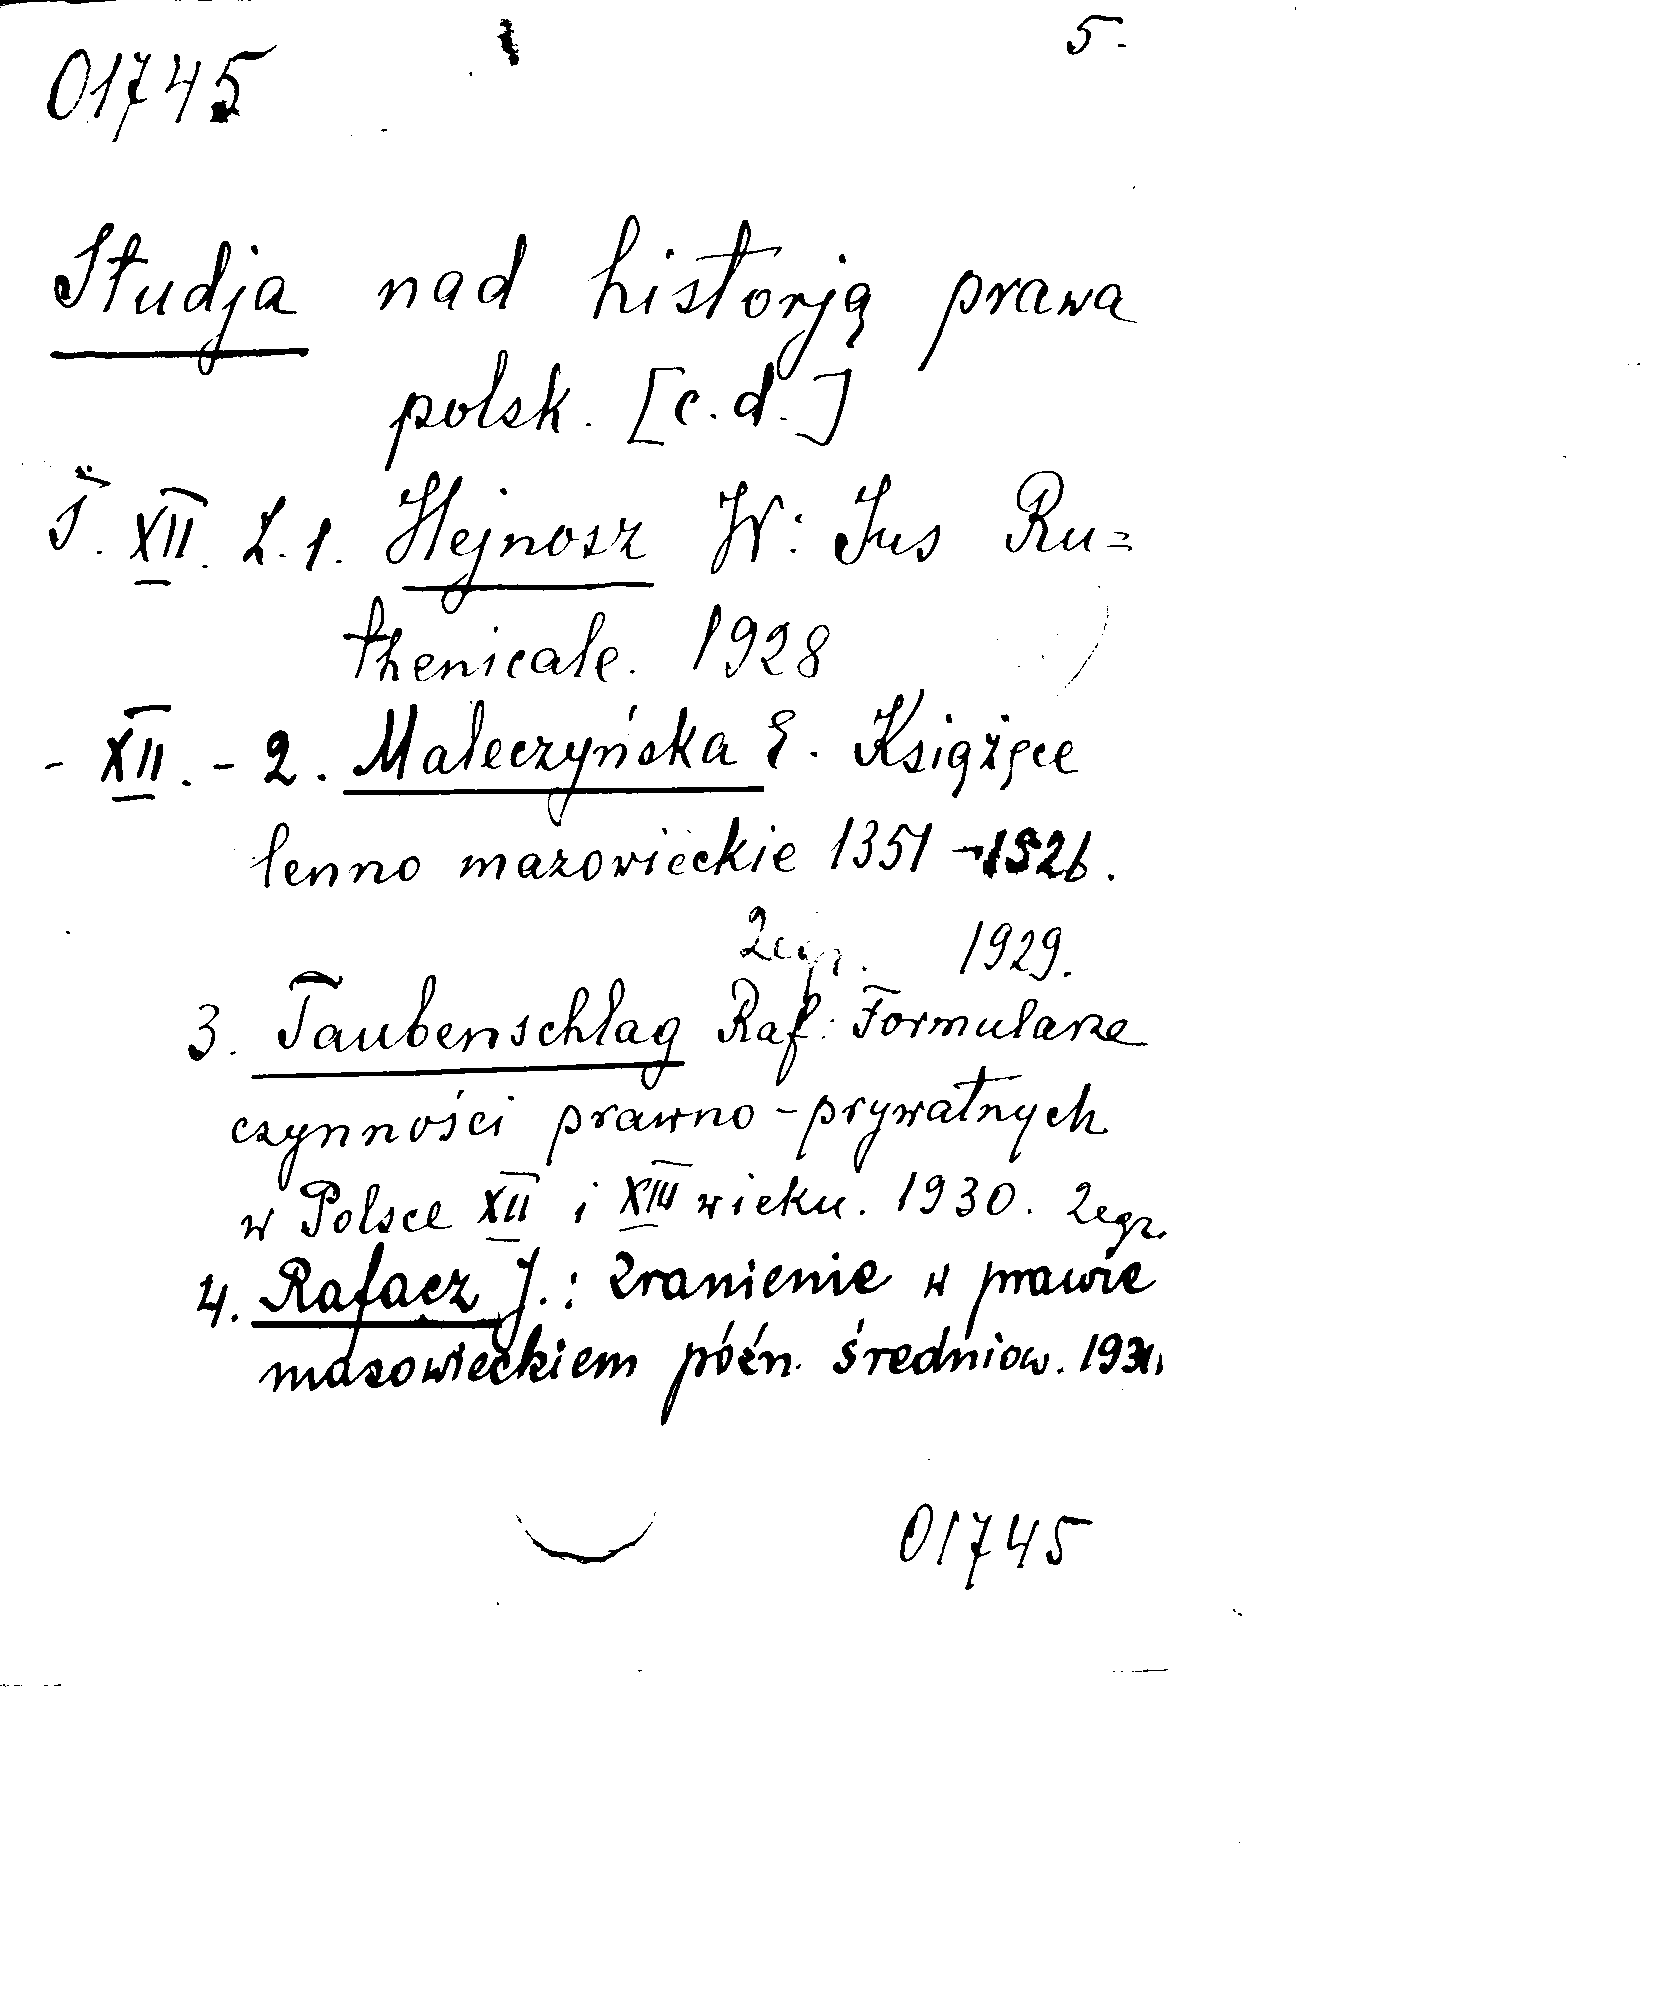 5.
01745
Studja nad historją prawa
polsk. [c.d.]
T. XII. Z. 1. Hejnosz W: Jus Ru=
thenicale. 1928
- XII. - 2. Maleczyńska E. Książęce
lenno mazowieckie 1351 - 1526.
2egz. 1929.
3. Taubenschlag Raf: Formularze
czynności prawno-prywatnych
w Polsce XII i XIII wieku. 1930. 2egz.
4. Rafacz J.: Zranienie w prawie
mazowieckiem późn. średniow. 1931.
01745